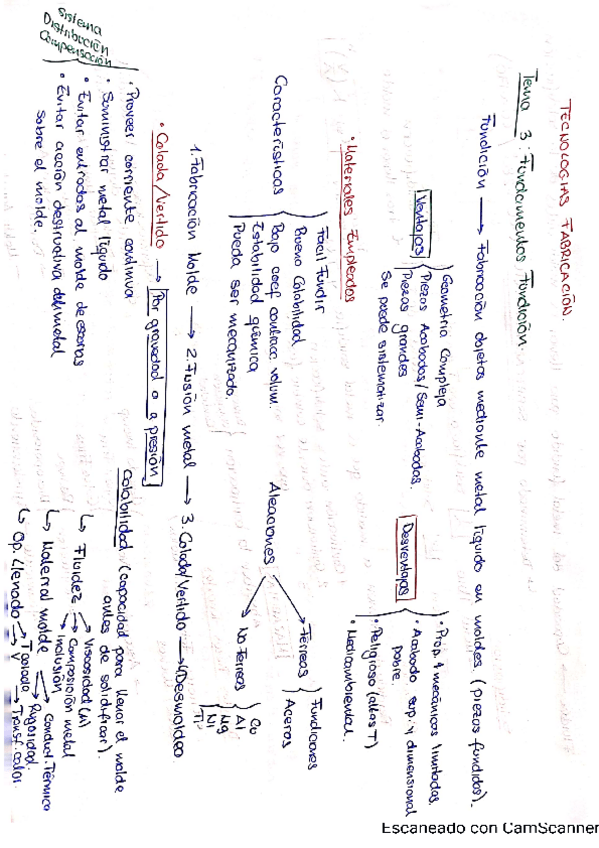 TECNOLOGIAS FABRICACIÓN.
Tema 3: Fundamentos Fundición.
Fundición → Fabricación objetos mediante metal líquido en moldes (piezas fundidas).
Ventajas
Geometría Compleja
Piezas Acabadas/Semi-Acabadas.
Piezas grandes
Se puede sistematizar.
Desventajas
• Prop. mecánicas limitadas.
• Acabado sup. y dimensional
pobre.
• Peligroso (altas T)
• Medioambiental.
• Materiales Empleados
Características
Fácil Fundir
Buena Colabilidad
Bajo coef contracc. volum.
Estabilidad química
Pueda ser mecanizado.
Aleaciones
Férreos
Fundiciones
Aceros
No Férreos
Cu
Al
Mg
Ni
Ti
1. Fabricación Molde → 2. Fusión metal → 3. Colada/Vertido → 4. Desmoldeo
• Colada/Vertido → Por gravedad o a presión
Sistema
Distribución
Compensación
• Proveer corriente continua
• Suministrar metal líquido
• Evitar entradas al molde de escorias
• Evitar acción destructiva del metal
sobre el molde.
Colabilidad (capacidad para llenar el molde
antes de solidificar).
↳ Fluidez → Viscosidad (μ)
→ Composición metal
→ Inclusión
↳ Material molde → Conduct. Térmica
→ Rugosidad.
↳ Op. Llenado → Tgada
→ Transf. calor.
Escaneado con CamScanner